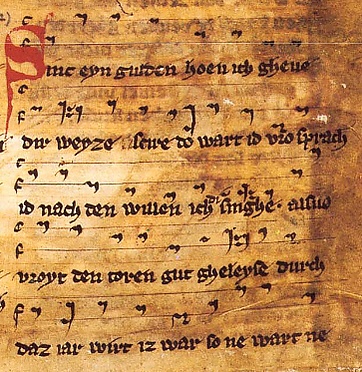 Sint eyn gulden hoen ich gheue
dir weyze scire do wart id vro sprach
id nach den willen ich singhe alsuo
vroyt den toren gut gheleyse durch
daz iar wirt iz war so ne wart ne